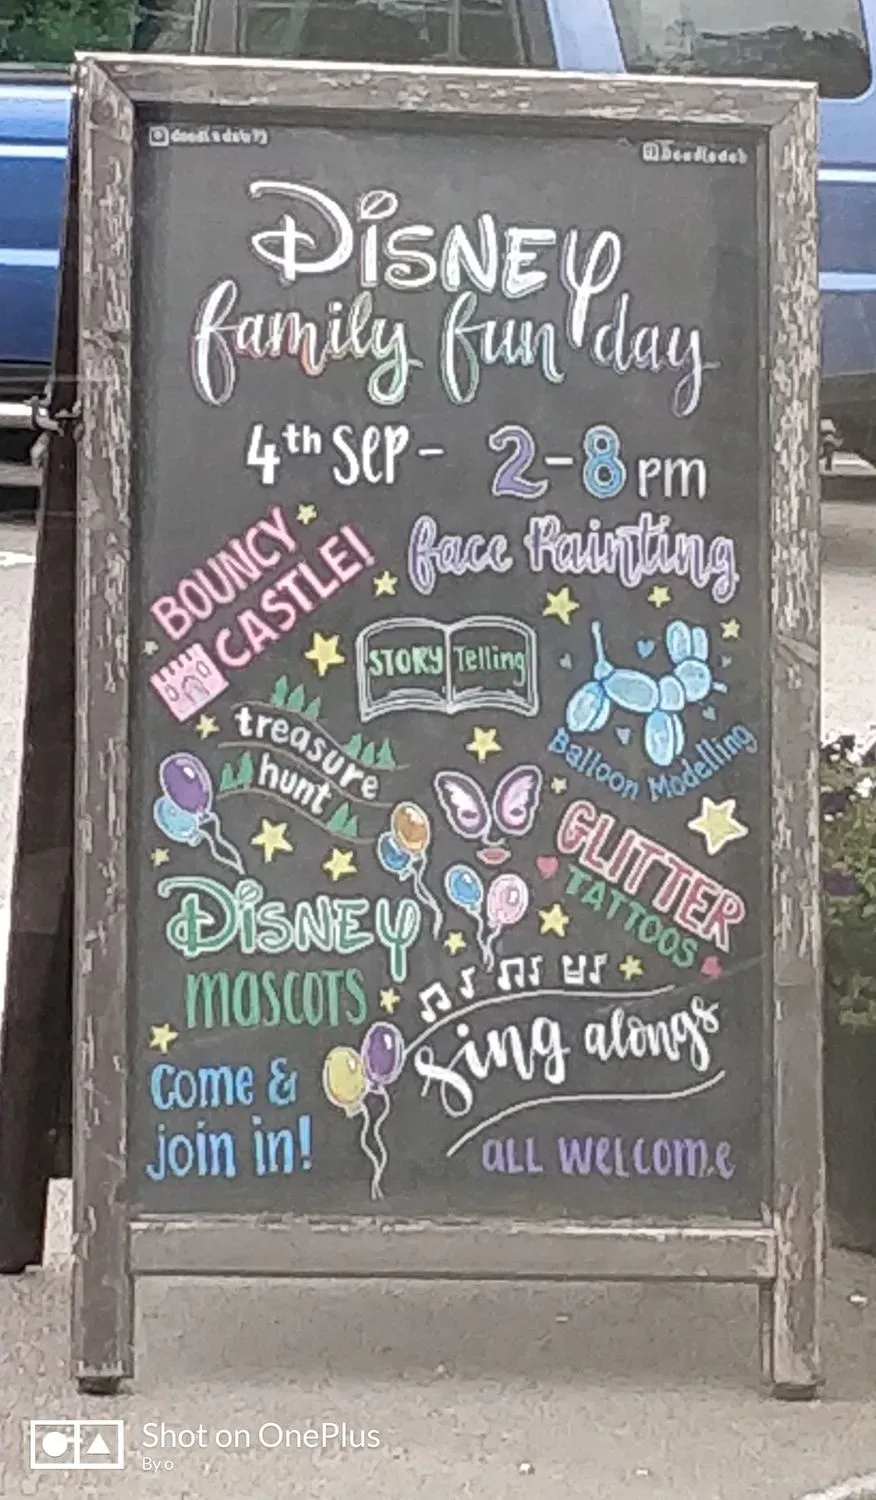 DISNEY
family fun day
4th SEP - 2-8 pm
BOUNCY
CASTLE!
face Painting
STORY Telling
treasure
hunt
Balloon Modelling
GLITTER
TATTOOS
DISNEY
MASCOTS
sing alongs
Come &
join in!
ALL WELCOME
Shot on OnePlus
By o